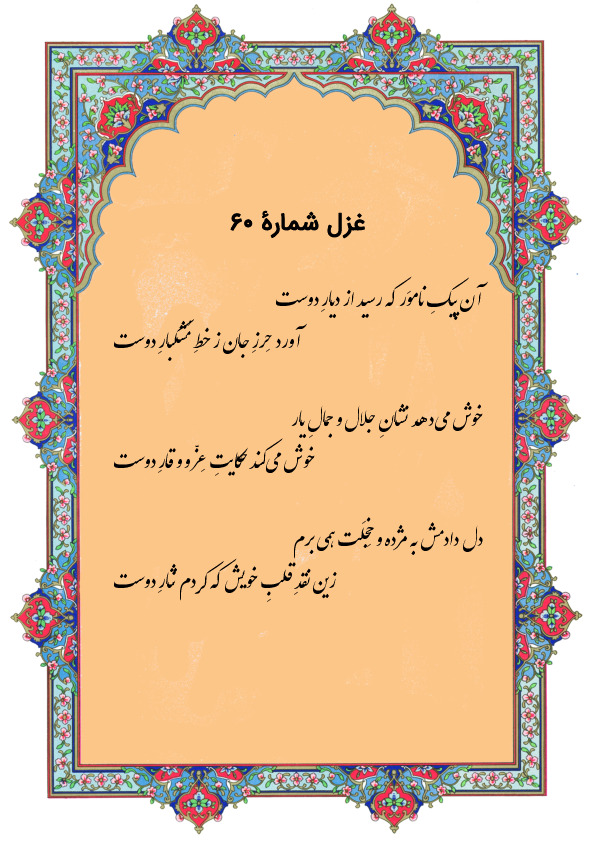 غزل شمارهٔ ۶۰
آن پیکِ ناموَر که رسید از دیارِ دوست
آورد حِرزِ جان ز خطِ مُشکبارِ دوست
خوش می‌دهد نشانِ جلال و جمالِ یار
خوش می‌کند حکایتِ عِزّ و وقارِ دوست
دل دادمش به مژده و خِجلَت همی‌ برم
زین نقدِ قلبِ خویش که کردم نثارِ دوست